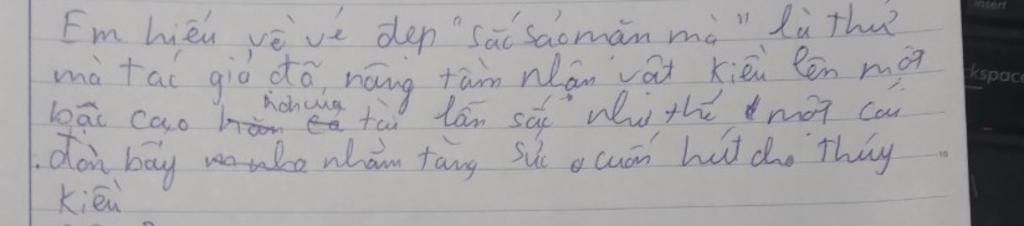 Em hiểu về vẻ đẹp "sắc sảo mặn mà" là thứ
mà tác giả đã nâng tầm nhân vật Kiều lên một
bậc cao hơn cả tài lẫn sắc như thế một cái
đòn bẩy nhằm tăng sức cuốn hút cho Thúy
Kiều
insert
kspace